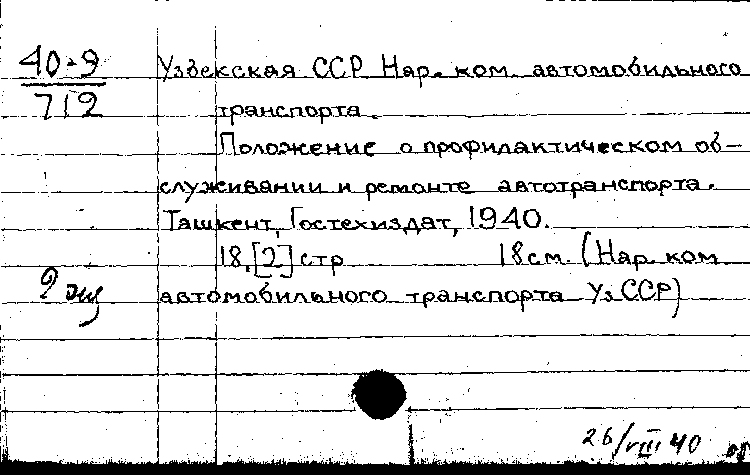 40-9
712
Узбекская ССР Нар. ком. автомобильного
транспорта.
Положение о профилактическом об-
служивании и ремонте автотранспорта.
Ташкент, Гостехиздат, 1940.
18, [2] стр 18 см. (Нар. ком
автомобильного транспорта Уз ССР)
2 экз
26/VIII 40